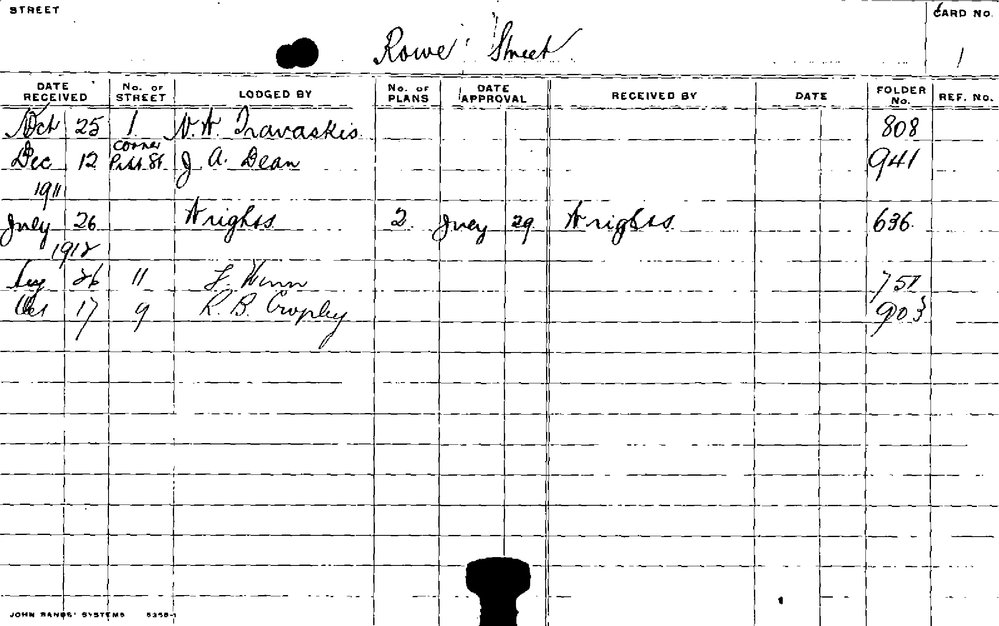 STREET Rowe Street CARD No. 1
DATE RECEIVED No. OF STREET LODGED BY No. OF PLANS DATE APPROVAL RECEIVED BY DATE FOLDER No. REF. No.
Oct 25 1 N. H. Travaskis 808
Dec 12 Corner Pitt St J A. Dean 941
1911
July 26 Wrights 2 July 29 Wrights 636
1912
Aug 26 11 757
Oct 17 9 R. B. Cropley 903
JOHN SANDS' SYSTEMS